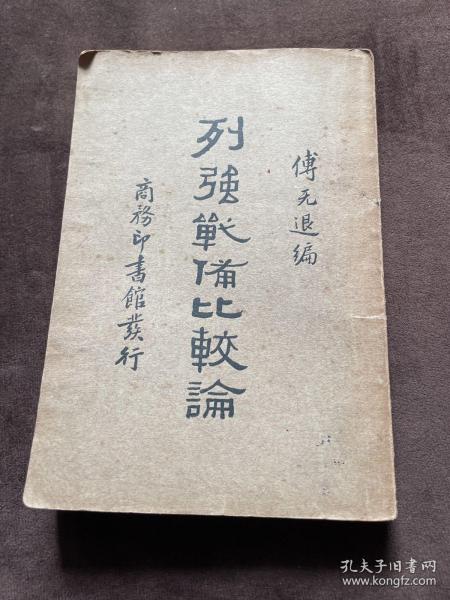 傅无退編
列強戰備比較論
商務印書館發行
孔夫子旧书网
www.kongfz.com